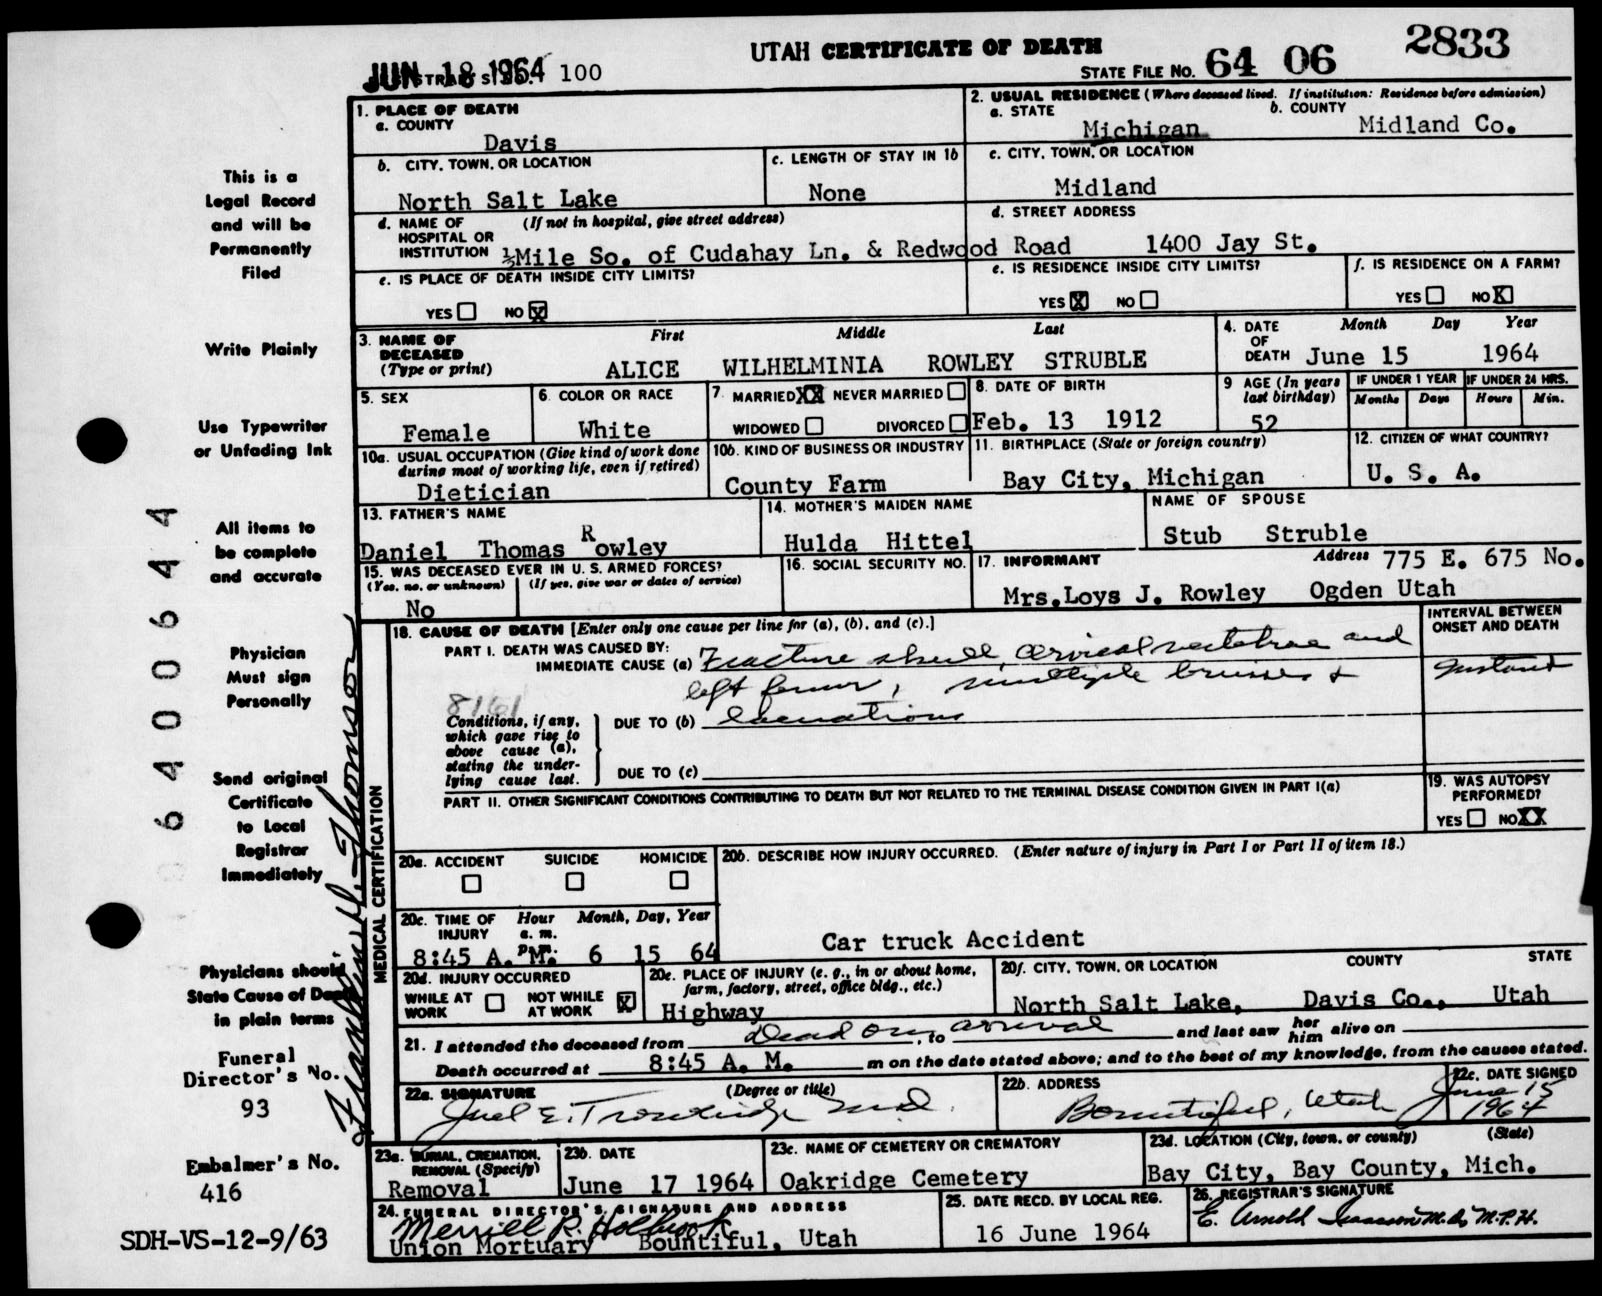 UTAH CERTIFICATE OF DEATH
2833
JUN 18 1964 100
STATE FILE NO. 64 06
1. PLACE OF DEATH
a. COUNTY
Davis
2. USUAL RESIDENCE (Where deceased lived. If institution: Residence before admission)
a. STATE Michigan b. COUNTY Midland Co.
b. CITY, TOWN, OR LOCATION
North Salt Lake
c. LENGTH OF STAY IN 1b
None
c. CITY, TOWN, OR LOCATION
Midland
d. NAME OF HOSPITAL OR INSTITUTION (If not in hospital, give street address)
½Mile So. of Cudahay Ln. & Redwood Road
d. STREET ADDRESS
1400 Jay St.
e. IS PLACE OF DEATH INSIDE CITY LIMITS?
YES NO X
e. IS RESIDENCE INSIDE CITY LIMITS?
YES X NO
f. IS RESIDENCE ON A FARM?
YES NO X
3. NAME OF DECEASED (Type or print)
First Middle Last
ALICE WILHELMINIA ROWLEY STRUBLE
4. DATE OF DEATH
Month Day Year
June 15 1964
5. SEX
Female
6. COLOR OR RACE
White
7. MARRIED XX NEVER MARRIED
WIDOWED DIVORCED
8. DATE OF BIRTH
Feb. 13 1912
9 AGE (In years last birthday)
52
IF UNDER 1 YEAR
Months Days
IF UNDER 24 HRS.
Hours Min.
10a. USUAL OCCUPATION (Give kind of work done during most of working life, even if retired)
Dietician
10b. KIND OF BUSINESS OR INDUSTRY
County Farm
11. BIRTHPLACE (State or foreign country)
Bay City, Michigan
12. CITIZEN OF WHAT COUNTRY?
U. S. A.
13. FATHER'S NAME
Daniel Thomas Rowley
14. MOTHER'S MAIDEN NAME
Hulda Hittel
NAME OF SPOUSE
Stub Struble
15. WAS DECEASED EVER IN U. S. ARMED FORCES?
(Yes, no, or unknown) (If yes, give war or dates of service)
No
16. SOCIAL SECURITY NO.
17. INFORMANT Address 775 E. 675 No.
Mrs.Loys J. Rowley Ogden Utah
18. CAUSE OF DEATH [Enter only one cause per line for (a), (b), and (c).]
INTERVAL BETWEEN ONSET AND DEATH
PART I. DEATH WAS CAUSED BY:
IMMEDIATE CAUSE (a) Fracture skull, cervical vertebrae and
left femur, multiple bruises +
Instant
8161
Conditions, if any, which gave rise to above cause (a), stating the underlying cause last.
DUE TO (b) lacerations
DUE TO (c)
PART II. OTHER SIGNIFICANT CONDITIONS CONTRIBUTING TO DEATH BUT NOT RELATED TO THE TERMINAL DISEASE CONDITION GIVEN IN PART I(a)
19. WAS AUTOPSY PERFORMED?
YES NO XX
20a. ACCIDENT SUICIDE HOMICIDE
20b. DESCRIBE HOW INJURY OCCURRED. (Enter nature of injury in Part I or Part II of item 18.)
Car truck Accident
20c. TIME OF INJURY Hour a. m. p. m. Month, Day, Year
8:45 A. M. 6 15 64
20d. INJURY OCCURRED
WHILE AT WORK NOT WHILE AT WORK X
20e. PLACE OF INJURY (e. g., in or about home, farm, factory, street, office bldg., etc.)
Highway
20f. CITY, TOWN, OR LOCATION COUNTY STATE
North Salt Lake, Davis Co., Utah
21. I attended the deceased from Dead on, to arrival and last saw her him alive on
Death occurred at 8:45 A. M. m on the date stated above; and to the best of my knowledge, from the causes stated.
22a. SIGNATURE (Degree or title)
Joel E. Trowbridge M.D.
22b. ADDRESS
Bountiful, Utah
22c. DATE SIGNED
June 15
1964
23a. BURIAL, CREMATION, REMOVAL (Specify)
Removal
23b. DATE
June 17 1964
23c. NAME OF CEMETERY OR CREMATORY
Oakridge Cemetery
23d. LOCATION (City, town, or county) (State)
Bay City, Bay County, Mich.
24. FUNERAL DIRECTOR'S SIGNATURE AND ADDRESS
Merrill R. Holbrook
Union Mortuary Bountiful, Utah
25. DATE RECD. BY LOCAL REG.
16 June 1964
26. REGISTRAR'S SIGNATURE
E. Arnold Isaacson M.D., M.P.H.
MEDICAL CERTIFICATION
This is a
Legal Record
and will be
Permanently
Filed
Write Plainly
Use Typewriter
or Unfading Ink
All items to
be complete
and accurate
Physician
Must sign
Personally
Send original
Certificate
to Local
Registrar
Immediately
Physicians should
State Cause of Death
in plain terms
Funeral
Director's No.
93
Embalmer's No.
416
SDH-VS-12-9/63
6400644